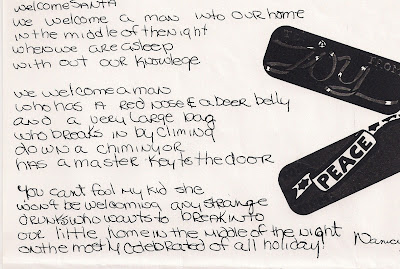 welcome SANTA
we welcome a man into our home
in the middle of the night
when we are asleep
with out our knowlege
we welcome a man
who has a red nose & a beer belly
and a very large bag
who breaks in by climing
down a chiminy or
has a master key to the door
You can't fool my kid she
won't be welcoming any strange
drunks who wants to break into
our little home in the middle of the night
on the mostly celebrated of all holiday!
Joy
PEACE